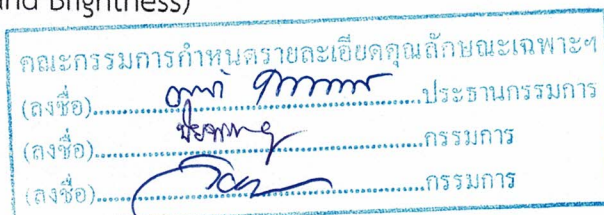 and Brightness)
คณะกรรมการกำหนดรายละเอียดคุณลักษณะเฉพาะฯ
(ลงชื่อ)....................ประธานกรรมการ
(ลงชื่อ)....................กรรมการ
(ลงชื่อ)....................กรรมการ